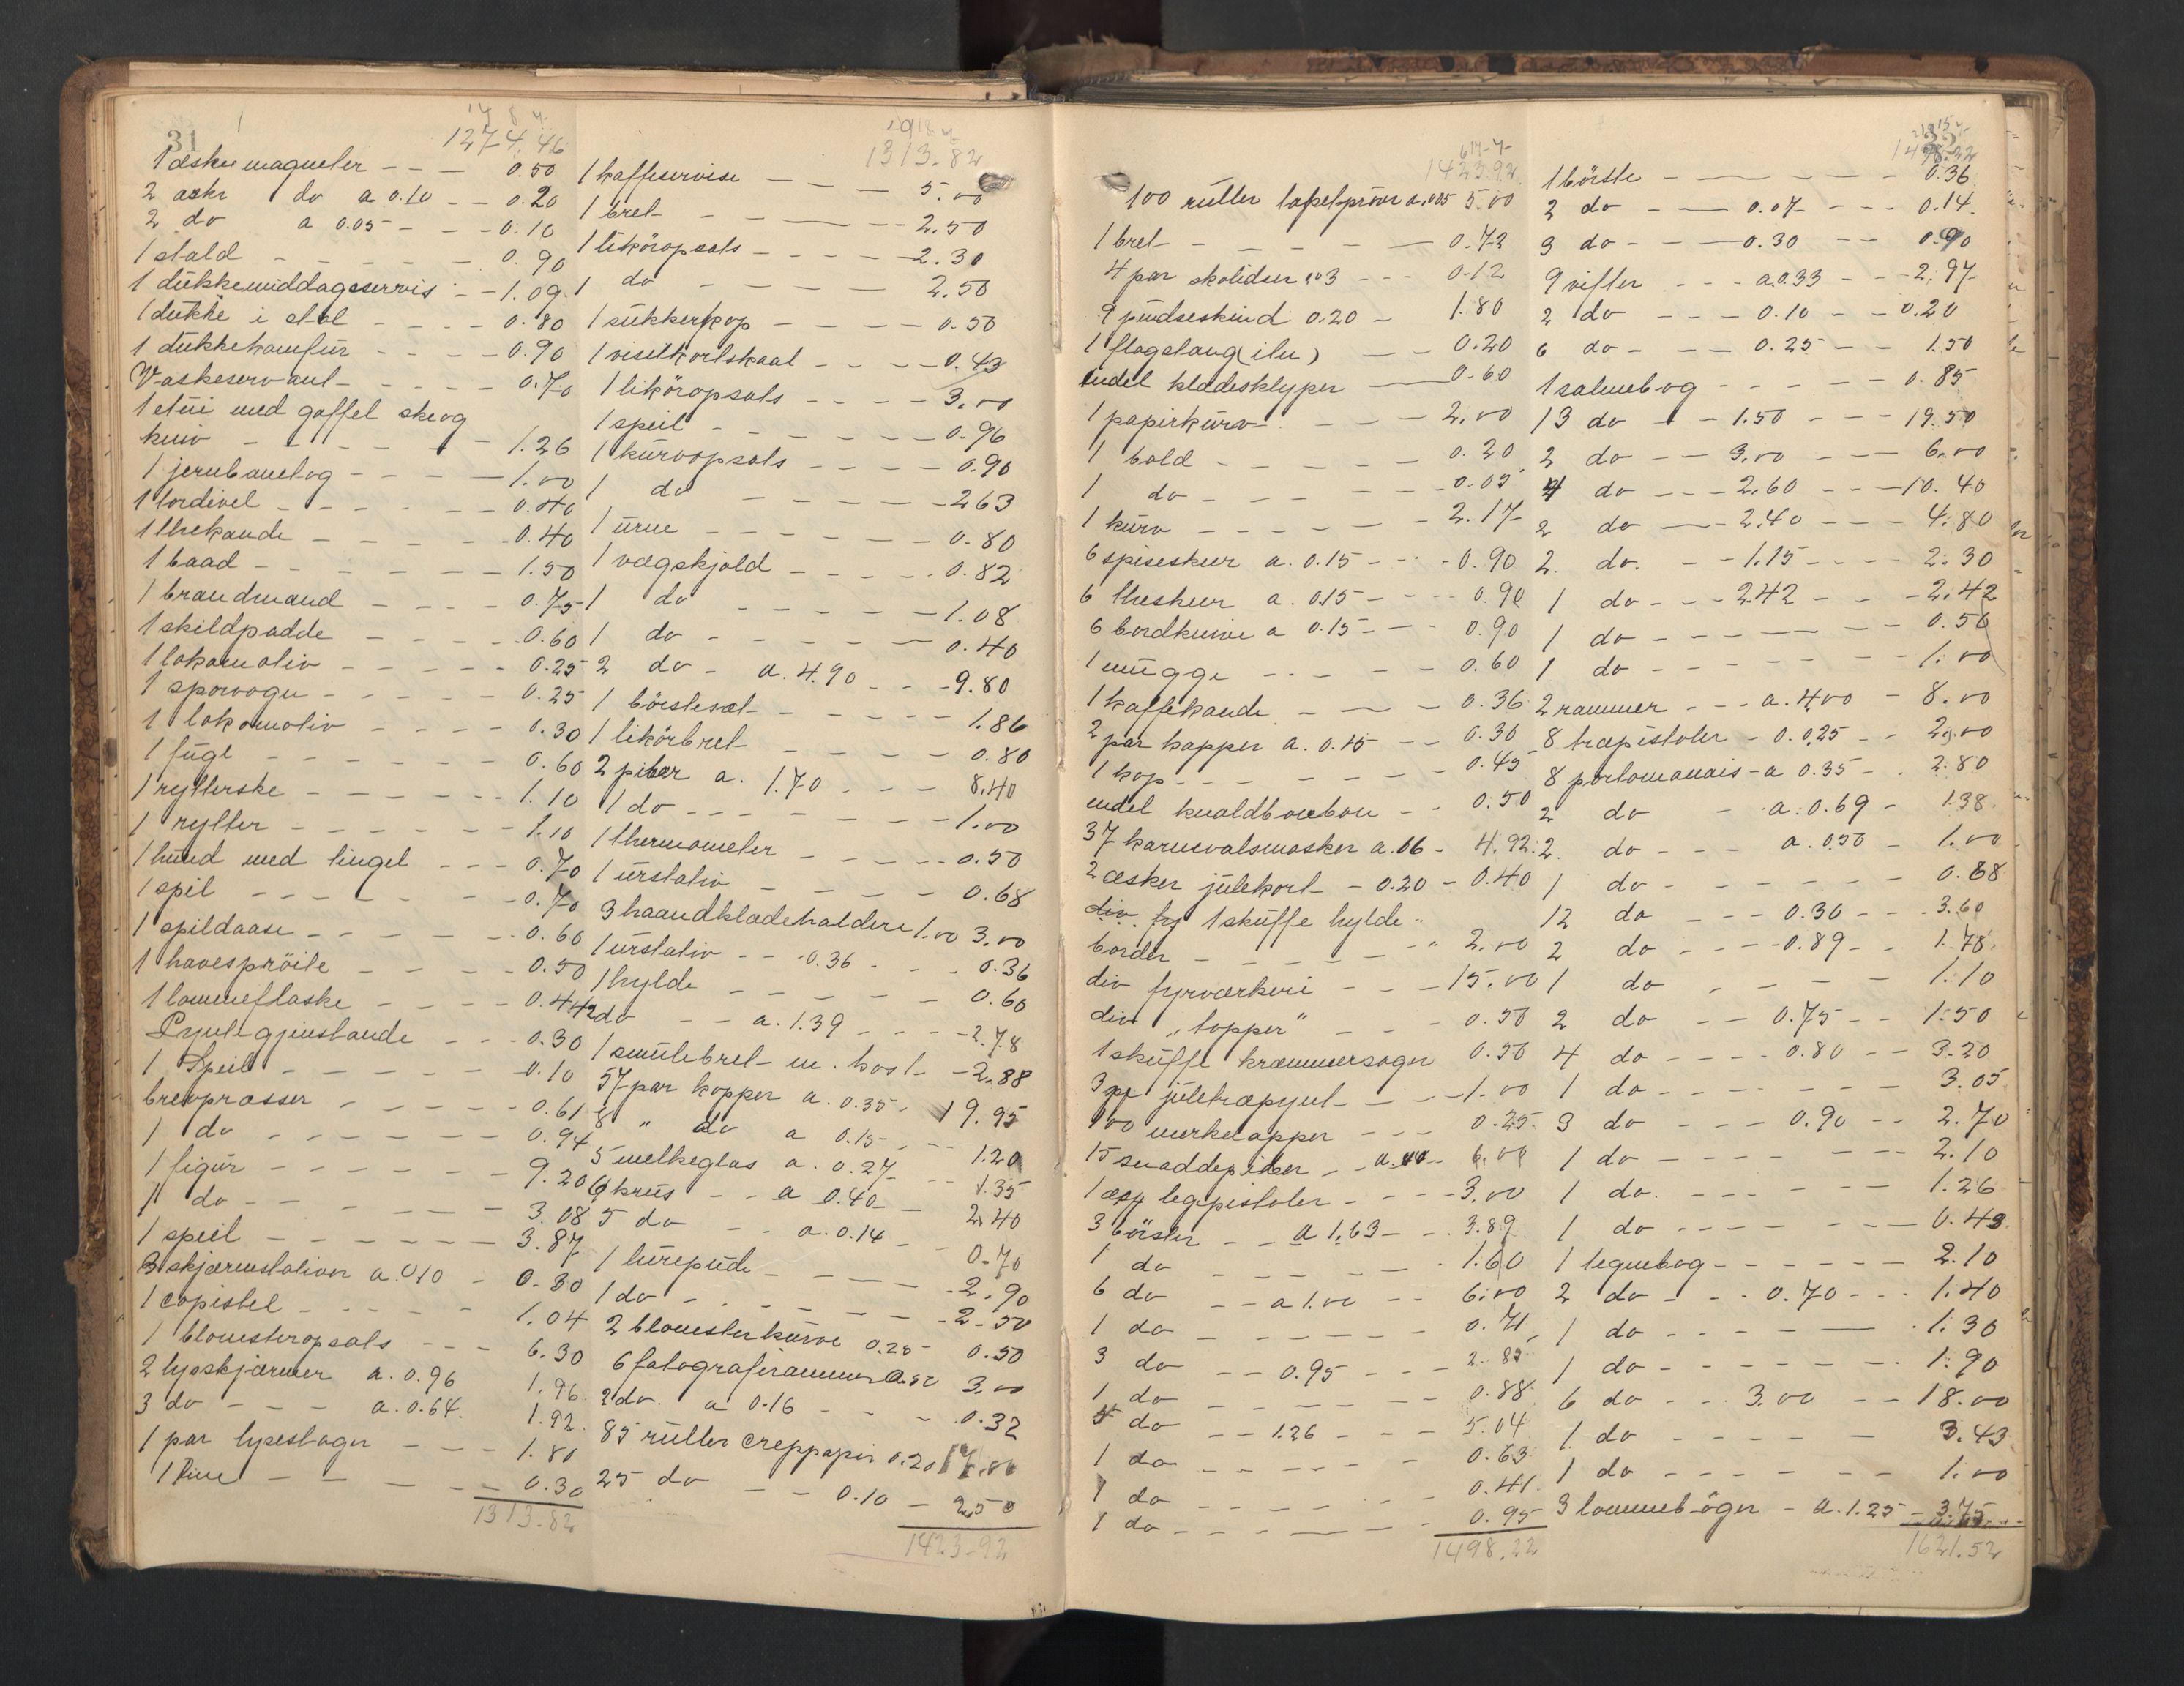 31
1274.46
1 æske magneter - - - 0.50
2 askr do a 0.10 - - 0.20
2 do a 0.05 - - - 0.10
1 stald - - - - - 0.90
1 dükkemiddagsservis - - 1.09
1 dükke i stol - - - - 0.80
1 dükkekomfür - - - - 0.90
Vaskeservant - - - - 0.70
1 etui med gaffel ske og
kniv - - - - - - 1.26
1 jernbanetog - - - - 1.00
1 tordivel - - - - - 0.40
1 thekande - - - - - 0.40
1 baad - - - - - - 1.50
1 brandmand - - - - 0.75
1 skildpadde - - - - 0.60
1 lokomotiv - - - - - 0.25
1 sporvogn - - - - - 0.25
1 lokomotiv - - - - 0.30
1 fugl - - - - - - 0.60
1 rytterske - - - - - 1.10
1 rytter - - - - - - 1.10
1 hünd med tingel - - - 0.70
1 spil - - - - - - 0.70
1 spildaase - - - - - 0.60
1 havesprøite - - - - 0.50
1 lommeflaske - - - - 0.44
Pyntegjenstande - - - 0.30
1 Speil - - - - - - 0.10
brevpresser - - - - - 0.61
1 do - - - - - - 0.94
1 figür - - - - - - 9.20
1 do - - - - - - 3.08
1 speil - - - - - - 3.87
3 skjærmstativer a. 0.10 - 0.30
1 copistel - - - - - 1.04
1 blomsteropsats - - - 6.30
2 lysskjærmer a. 0.96 1.96
3 do - - - a. 0.64. 1.92
1 par lysestager - - - 1.80
1 - - - - - 0.30
1313.82
1313.82
1 kaffeservise - - - - 5.00
1 bret - - - - - 2.50
1 liköropsats - - - - - 2.30
1 do - - - - - 2.50
1 sükkerkop - - - - - 0.50
1 visitkortskaal - - - - 0.43
1 likøropsats - - - - 3.00
1 speil - - - - - - 0.96
1 kürvopsats - - - - 0.90
1 do - - - - - - 263
1 urne - - - - - - 0.80
1 vægskjold - - - - - 0.82
1 do - - - - - - 1.08
1 do - - - - - - 0.40
2 do - a. 4.90 - - - 9.80
1 börstesæt - - - - - 1.86
1 likörbret - - - - - 0.80
2 piber a. 1.70 - - - 8.40
1 do - - - - - - - 1.00
1 thermometer - - - - - 0.50
1 ürstativ - - - - - 0.68
3 haandklædeholdere 1.00 3.00
1 ürstativ - - - 0.36 - - - 0.36
1 hylde - - - - - - 0.60
2 do - - a. 1.39 - - - 2.78
1 smülebret m. kost - 2.88
57 par kopper a. 0.35 - 19.95
8 " do a 0.15 - - - 1.20
5 melkeglas a. 0.27 - - 1.35
6 krüs - - a 0.40 - - 2.40
5 do - - a. 0.14 - - 0.70
1 lürepüde - - - - 2.90
1 do - - - - - - 2.50
2 blomsterkürve 0.25 - 0.50
6 fotografirammer a. 50 3.00
2 do. a 0.16 - - - 0.32
85 rüller creppapir 0.20 17.00
25 do - - 0.10 - 2.50
1423.92
1423.92
100 rüller tapetprøver a. 005 5.00
1 bret - - - - - 0.72
4 par skolidser a 03 - - - 0.12
9 püdseskind 0.20 - 1.80
1 flagstang (itu) - - 0.20
endel klædesklyper - 0.60
1 papirkürv - - - 2.00
1 bold - - - - - 0.20
1 do - - - - - 0.05
1 kürv - - - - - 2.17
6 spiseskeer a. 0.15 - - - 0.90
6 theskeer a. 0.15 - - - 0.90
6 bordknive a 0.15 - - - 0.90
1 mügge - - - - 0.60
1 kaffekande - - - 0.36
2 par kopper a. 0.15 - - 0.30
1 kop - - - - - - 0.45
endel knaldbonbon - - 0.50
37 karnevalsmasker a. 06 - 4.92
2 æsker jülekort - 0.20 - 0.40
div. fra 1 sküffe hylde "
border - - - - - " 2.00
div fyrværkeri - - - 15.00
div „topper" - - - 0.50
1 sküffe kræmmersager 0.50
3 jületræpynt - - - 1.00
100 merkelapper - - - 0.25
15 snaddepiber - - a. 40 - 6.00
1 legepistoler - - - - 3.00
3 börster - - a 1.63 - - 3.89
1 do - - - - - - 1.60
6 do - - a 1.00 - - 6.00
1 do - - - - - - 0.71
3 do - - 0.95 - - - 2.85
1 do - - - - - 0.88
4 do - - 1.26 - - - 5.04
1 do - - - - - 0.63
1 do - - - - - 0.41
1 do - - - - - 0.95
1498.22
1498.22
1 börste - - - - - 0.36
2 do - - 0.07 - - - 0.14
3 do - - - 0.30 - - 0.90
9 vifter - - - a. 0.33 - - 2.97
2 do - - - 0.10 - - 0.20
6 do - - - 0.25 - - 1.50
1 salmebog - - - - - 0.85
13 do - - 1.50 - - - 19.50
2 do - - 3.00 - - - 6.00
4 do - - - 2.60 - - - 10.40
2 do - - 2.40 - - - 4.80
2 do. - - 1.15 - - - - 2.30
1 do - - - 2.42 - - - 2.42
1 do - - - - - - 0.50
1 do - - - - - - 1.00
2 rammer - - - a. 4.00 - 8.00
8 træpistoler - 0.0.25 - - 2.00
8 portomonais - a 0.35 - - 2.80
2 do - a. 0.69 - 1.38
2. do - - - a. 0.50 - 1.00
1 do - - - - - - 0.88
12 do - - - 0.30 - - - 3.60
2 do - - - 0.89 - - 1.78
1 do - - - - - 1.10
2 do - - 0.75 - - 1.50
4 do - - - - 0.80 - - 3.20
1 do - - - - - - 3.05
3 do - - - 0.90 - - 2.70
1 do - - - - - - 2.10
1 do. - - - - - 1.26
1 do - - - - - - 0.43
1 tegnebog - - - - - - 2.10
2 do - - - 0.70 - - - 1.40
1 do - - - - - 1.30
1 do - - - - - - - 1.90
6 do - - - 3.00 - - 18.00
1. do - - - - - 3.43
1 do - - - - - - 1.00
3 lommebøger - a. 1.25 - 3.75
1621.52